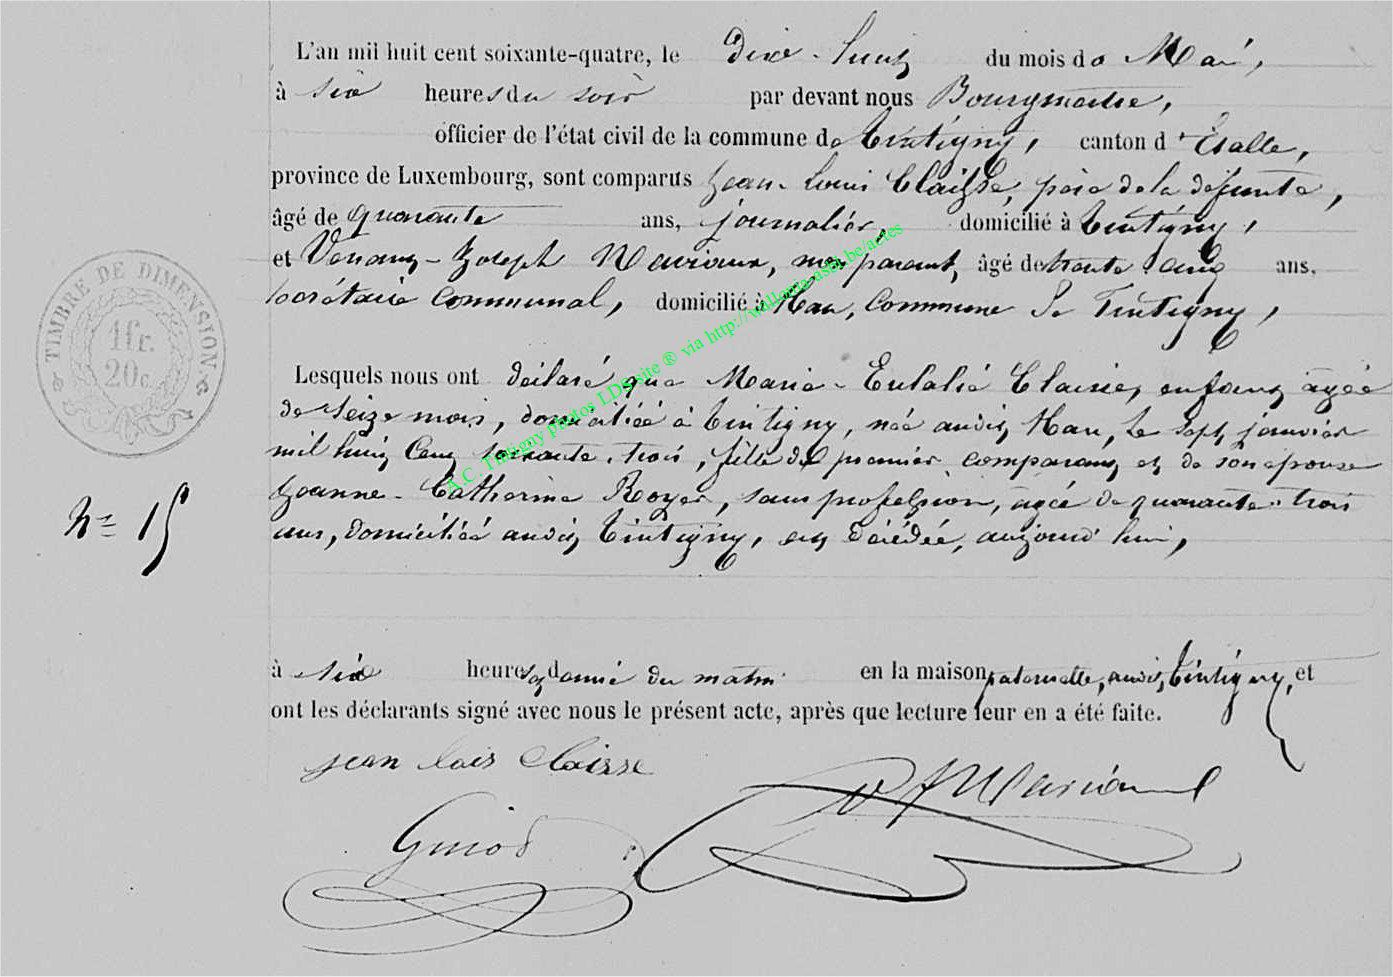 L'an mil huit cent soixante-quatre, le Dix-huit du mois de Mai,
à six heures du soir par devant nous Bourgmestre,
officier de l'état civil de la commune de Tintigny, canton d'Etalle,
province de Luxembourg, sont comparus Jean-Louis Claisse, père de la défunte,
âgé de quarante ans, journalier, domicilié à Tintigny,
et Venant-Joseph Mariaux, non parent, âgé de trente cinq ans,
secrétaire communal, domicilié à Han, Commune de Tintigny,
TIMBRE DE DIMENSION
1 fr.
20 c.
Lesquels nous ont déclaré que Marie-Eulalie Claisse, enfant âgée
de seize mois, domiciliée à Tintigny, née audit Han, le sept janvier
mil huit cent soixante-trois, fille du premier comparant et de son épouse
Jeanne-Catherine Royer, sans profession, âgée de quarante-trois
ans, domiciliée audit Tintigny, est décédée, aujourd'hui,
N° 15
à six heures et demie du matin en la maison paternelle, audit Tintigny, et
ont les déclarants signé avec nous le présent acte, après que lecture leur en a été faite.
jean lois Claisse
VJ Mariaux
Guiot
A.C. Tintigny photos LDS site ® via http://wallonia-asbl.be/actes